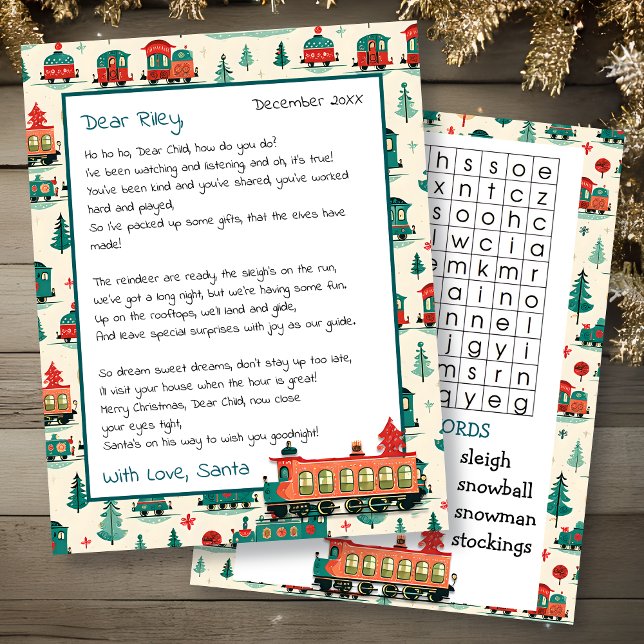 December 20XX
Dear Riley,
Ho ho ho, Dear Child, how do you do?
I've been watching and listening, and oh, it's true!
You've been kind and you've shared, you've worked
hard and played,
So I've packed up some gifts, that the elves have
made!
The reindeer are ready, the sleigh's on the run,
we've got a long night, but we're having some fun.
Up on the rooftops, we'll land and glide,
And leave special surprises with joy as our guide.
So dream sweet dreams, don't stay up too late,
I'll visit your house when the hour is great!
Merry Christmas, Dear Child, now close
your eyes tight,
Santa's on his way to wish you goodnight!
With Love, Santa
h s s o e
x n t c z
s o o h c
l w c i a
e m k m r
a i n o
n n e l
j g y i
m s r n
g y e g
ORDS
sleigh
snowball
snowman
stockings